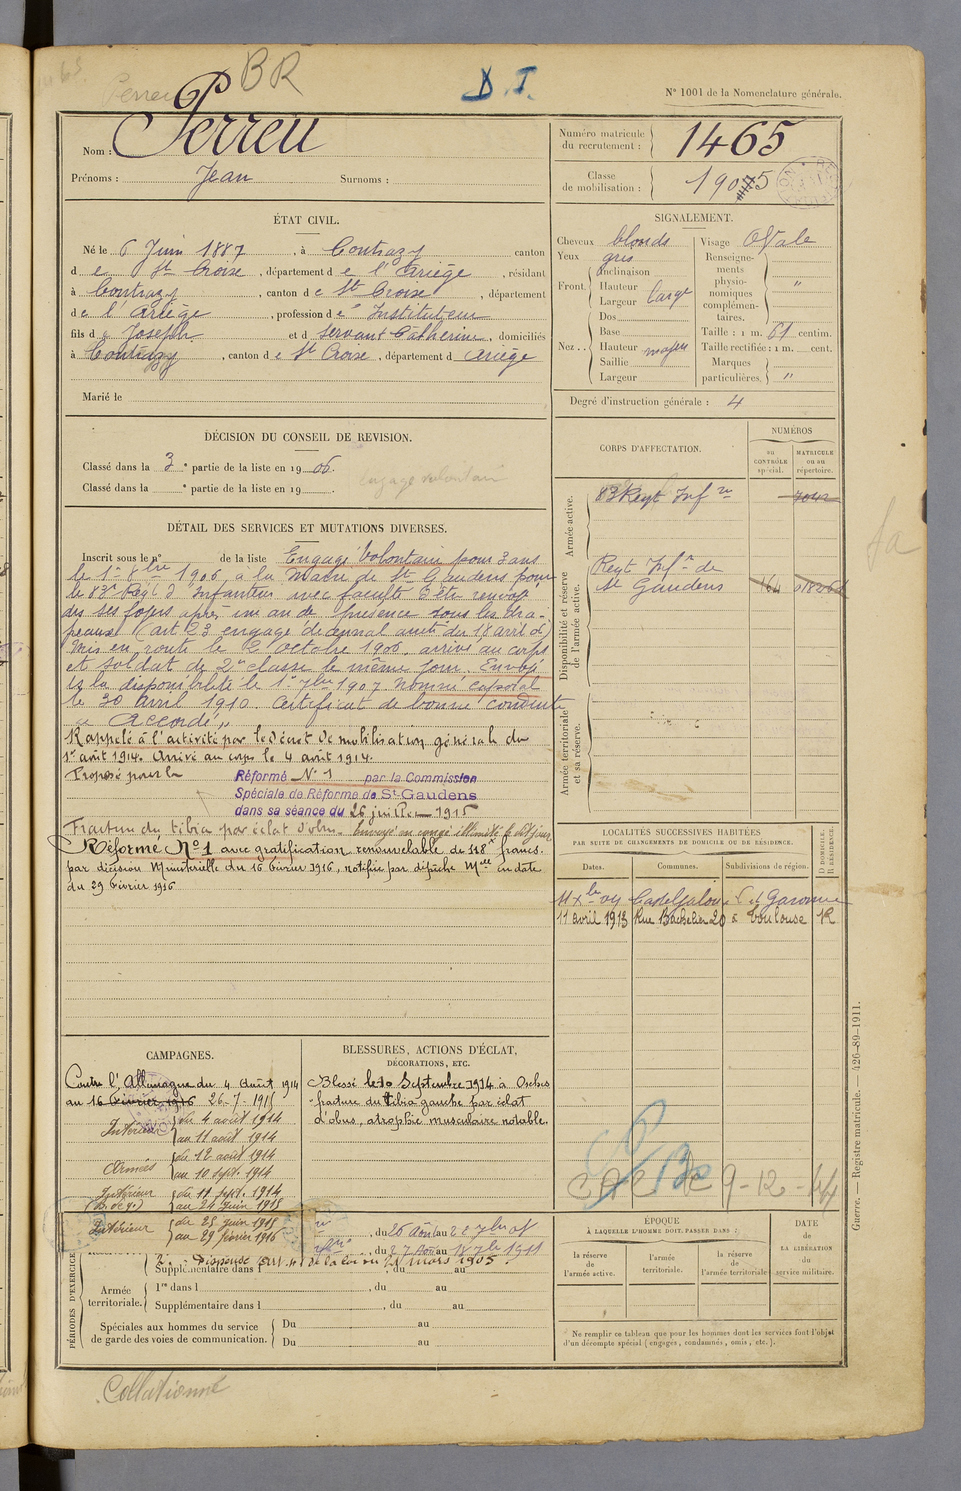 BR
D. I.
N° 1001 de la Nomenclature générale.
Nom : Perreu
Prénoms : Jean Surnoms :
Numéro matricule du recrutement : 1465
Classe de mobilisation : 1905
ÉTAT CIVIL.
Né le 6 Juin 1887, à Contrazy canton
de St Croise, département de l'Ariège, résidant
à Contrazy, canton de St Croise, département
de l'Ariège, profession de Instituteur
fils de Joseph et de Servant Catherine, domiciliés
à Contrazy, canton de St Croise, département d Ariège
Marié le
SIGNALEMENT.
Cheveux blonds
Yeux gris
Front. Inclinaison
Hauteur
Largeur large
Nez . . Dos
Base
Hauteur moyen
Saillie
Largeur
Visage Ovale
Renseignements physionomiques complémentaires. "
Taille : 1 m. 61 centim.
Taille rectifiée : 1 m. cent.
Marques particulières. "
Degré d'instruction générale : 4
DÉCISION DU CONSEIL DE REVISION.
Classé dans la 3e partie de la liste en 1906.
Classé dans la e partie de la liste en 19
engagé volontaire
DÉTAIL DES SERVICES ET MUTATIONS DIVERSES.
Inscrit sous le n° de la liste Engagé Volontaire pour 3 ans
le 1er 8bre 1906, à la Mairie de St Gaudens pour
le 83e Regt d'Infanterie avec faculté d'être renvoyé
des ses foyers après un an de présence sous les dra-
peaux (art 23 engagé décennal
Mis en route le 2 Octobre 1906. arrivé au corps
et soldat de 2e classe le même jour. Envoyé
ds la disponibilité le 1er 7bre 1907. Nommé caporal
le 30 avril 1910. Certificat de bonne conduite
" Accordé "
Rappelé à l'activité par le Décret de mobilisation générale du
1er août 1914. Arrivé au corps le 4 août 1914.
Proposé pour la Réformé N° 1 par la Commission
Spéciale de Réforme de St-Gaudens
dans sa séance du 26 juillet 1915
Fracture du tibia par éclat d'obus. Envoyé en congé illimité le dit jour
Réformé N° 1 avec gratification renouvelable de 118 francs.
par décision Ministérielle du 16 février 1916, notifiée par dépêche Mlle en date
du 29 février 1916
CORPS D'AFFECTATION.
NUMÉROS
au CONTRÔLE spécial.
MATRICULE ou au répertoire.
Armée active.
83 Regt Infrie 7042
Disponibilité et réserve de l'armée active.
Regt Infie de
St Gaudens 164
Armée territoriale et sa réserve.
LOCALITÉS SUCCESSIVES HABITÉES
PAR SUITE DE CHANGEMENTS DE DOMICILE OU DE RÉSIDENCE.
Dates. Communes. Subdivisions de région. D DOMICILE. R RÉSIDENCE.
11 Xbre 09 Casteljaloux Lot et Garonne
11 avril 1913 Rue Bachelier 20 à Toulouse R
CAMPAGNES.
Contre l'Allemagne du 4 Août 1914
au 16 février 1916 26-7-1915
Intérieur du 4 août 1914
au 11 août 1914
Armées du 12 août 1914
au 10 sept. 1914
Intérieur du 11 sept. 1914
au 24 juin 1915
Intérieur du 25 juin 1915
au 29 février 1916
BLESSURES, ACTIONS D'ÉCLAT,
DÉCORATIONS, ETC.
Blessé le 10 Septembre 1914 à Osches
fracture du tibia gauche par éclat
d'obus, atrophie musculaire notable.
9-12-44
PÉRIODES D'EXERCICE
, du 26 Août au 22 7bre 08
, du 27 Août au 18 7bre 1911
2e Dispensé Art. de la loi du 21 mars 1905.
Supplémentaire dans l , du au
Armée territoriale. 1re dans l , du au
Supplémentaire dans l , du au
Spéciales aux hommes du service de garde des voies de communication. Du au
Du au
ÉPOQUE
À LAQUELLE L'HOMME DOIT PASSER DANS
la réserve de l'armée active.
l'armée territoriale.
la réserve de l'armée territoriale
DATE DE LA LIBÉRATION du service militaire.
Ne remplir ce tableau que pour les hommes dont les services font l'objet
d'un décompte spécial (engagés, condamnés, omis, etc.).
Guerre. — Registre matricule. — 426-89-1911.
Collationné